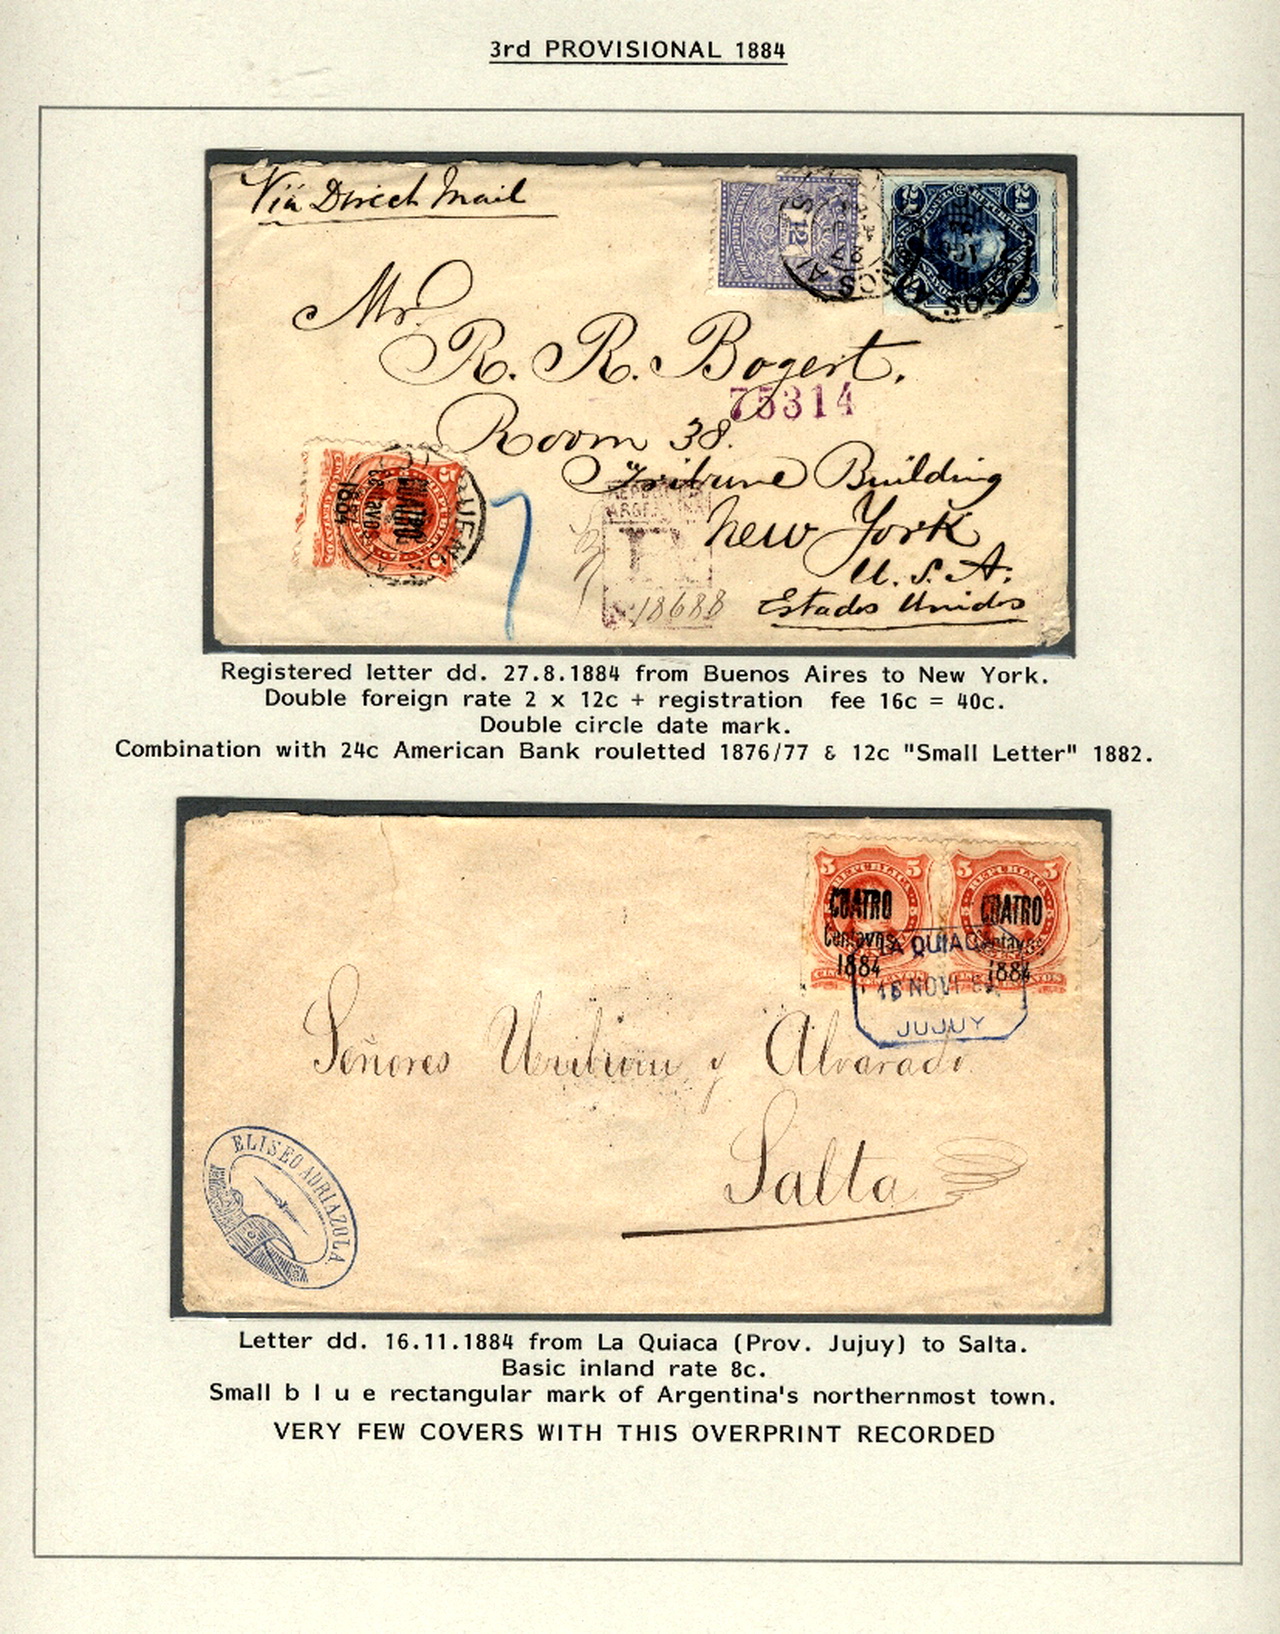 3rd PROVISIONAL 1884
Via Direct Mail
12
Mr.
R. R. Bogert.
75314
Room 38.
Tribune Building
New York
U. S. A.
Estados Unidos
5
CUATRO
Centavos
1884
BUENOS
7
REPUBLICA
ARGENTINA
R
18688
Registered letter dd. 27.8.1884 from Buenos Aires to New York.
Double foreign rate 2 x 12c + registration fee 16c = 40c.
Double circle date mark.
Combination with 24c American Bank rouletted 1876/77 & 12c "Small Letter" 1882.
5 REPUBLICA 5 5 REPUBLICA 5
CUATRO CUATRO
Centavos Centavos
1884 1884
LA QUIACA
16 NOV
JUJUY
Señores Uriburu y Alvarado
Salta
ELISEO ADRIAZOLA
Letter dd. 16.11.1884 from La Quiaca (Prov. Jujuy) to Salta.
Basic inland rate 8c.
Small b l u e rectangular mark of Argentina's northernmost town.
VERY FEW COVERS WITH THIS OVERPRINT RECORDED